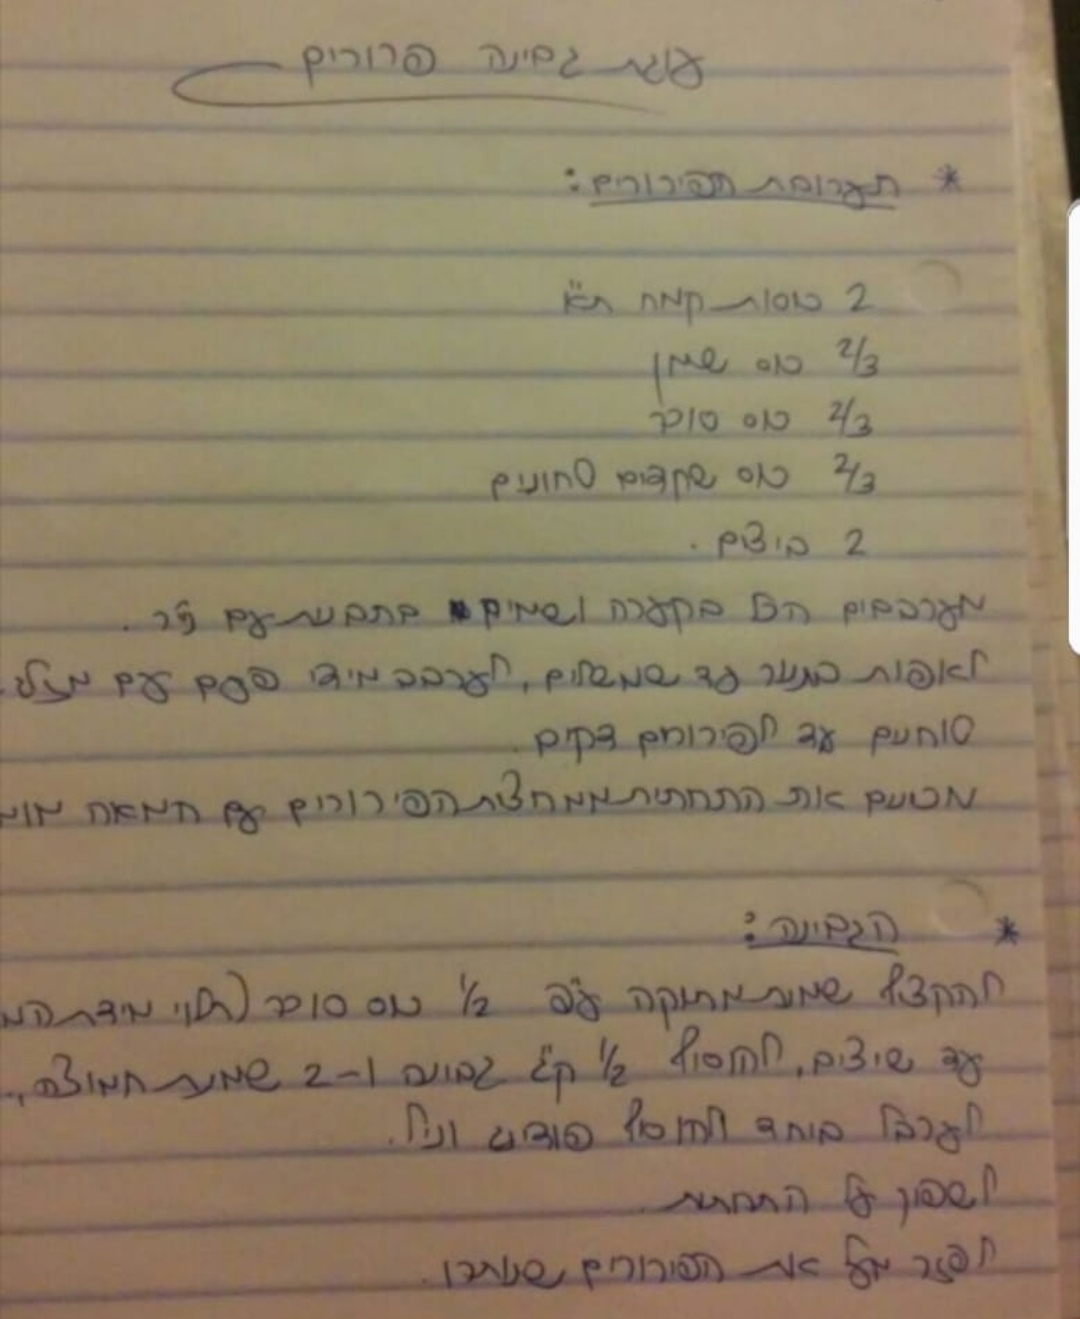 עוגת גבינה פרורים
* תערובת הפירורים:
2 כוסות קמח תא"
2/3 כוס שמן
2/3 כוס סוכר
2/3 כוס שקדים טחונים
2 ביצים.
מערבבים הכל בקערה ושמים בתבנית עם נייר.
לאפות בתנור עד שמשחים, לערבב מידי פעם עם מזלג
טוחנים עד לפירורים דקים
מכסים את התחתית ממחצית הפירורים עם חמאה
* הגבינה:
להקציף שמנת מתוקה עם 1/2 כוס סוכר (תלוי מידת
עד שיציב, להוסיף 1/2 ק"ג גבינה ו-2 שמנת חמוצה,
לערבל ביחד להוסיף פודינג וניל.
לשפוך על התחתית
לפזר מעל את הפירורים שנותרו.